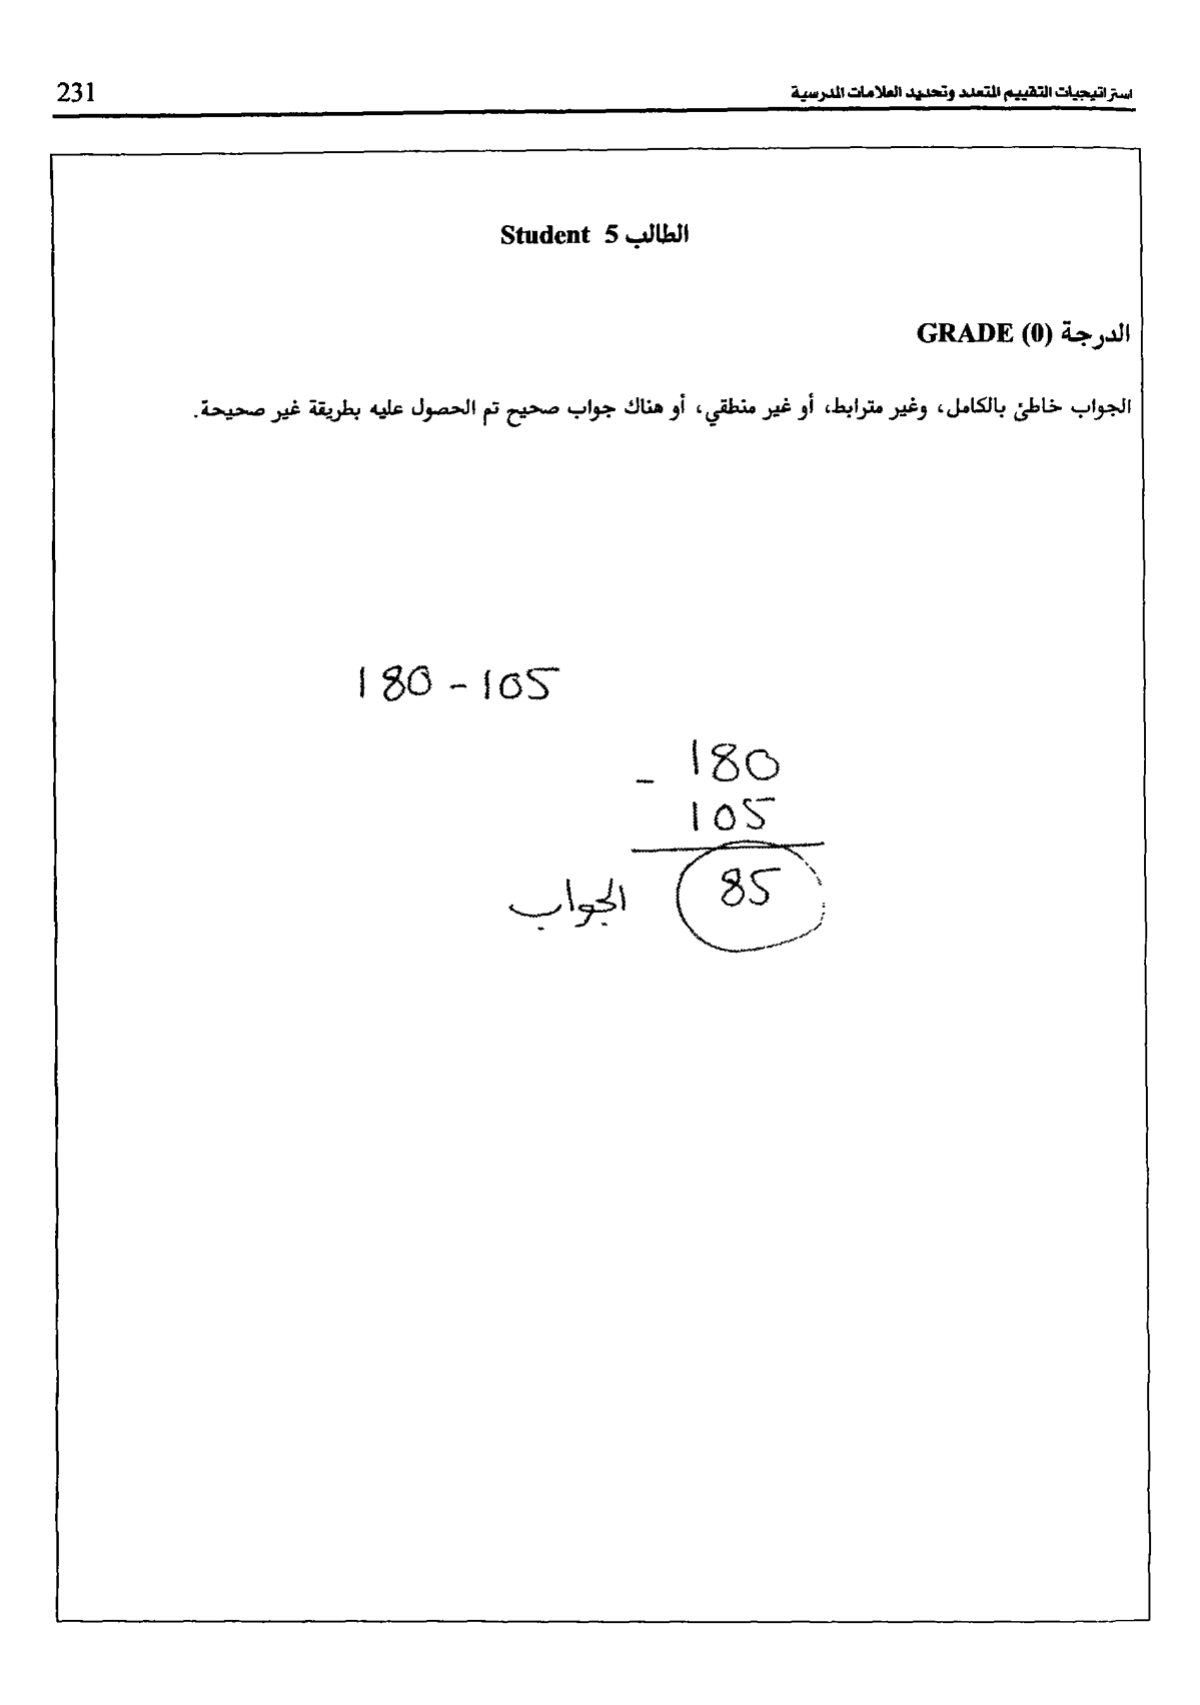 استراتيجيات التقييم المتعدد وتحديد العلامات المدرسية 231
الطالب 5 Student
الدرجة GRADE (0)
الجواب خاطئ بالكامل، وغير مترابط، أو غير منطقي، أو هناك جواب صحيح تم الحصول عليه بطريقة غير صحيحة.
180 - 105
- 180
105
85 الجواب